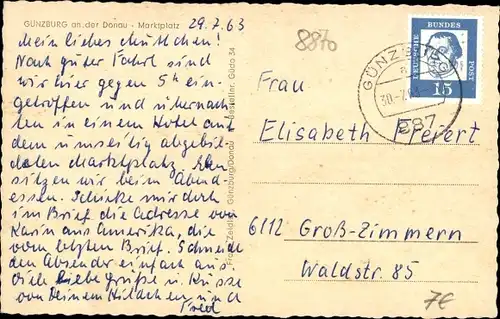 GÜNZBURG an der Donau - Marktplatz
29.7.63
Mein liebes Muttchen!
Nach guter Fahrt sind
wir hier gegen 5h ein-
getroffen und übernach-
ten in einem Hotel auf
dem umseitig abgebil-
deten Marktplatz. Eben
sitzen wir beim Abend-
essen. Schicke mir doch
im Brief die Adresse von
Karin aus Amerika, die
vom letzten Brief. Schneide
den Absender einfach aus
Viele liebe Grüße u. Küsse
von Deinem Hildchen und
Fred
Günzburg/Donau
Bestellnr. Günzb 34
8870
GÜNZBURG
30.-7.63
887
DEUTSCHE
BUNDES
POST
15
Frau
Elisabeth Freiert
6112 Groß-Zimmern
Waldstr. 85
7€